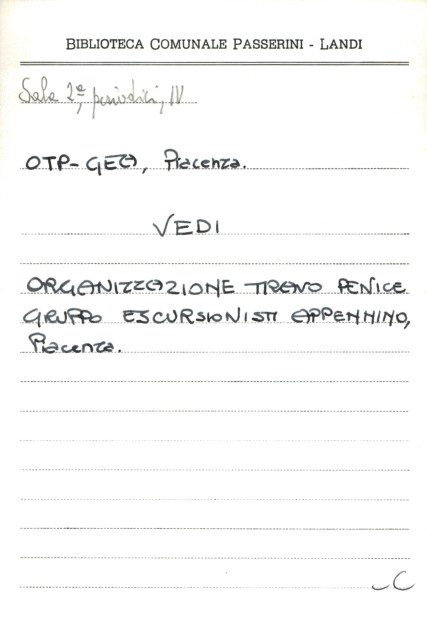 BIBLIOTECA COMUNALE PASSERINI - LANDI
Sala 2ª, periodici, IV
OTP-GEA, Piacenza.
VEDI
ORGANIZZAZIONE PENICE
GRUPPO ESCURSIONISTI APPENNINO,
Piacenza.